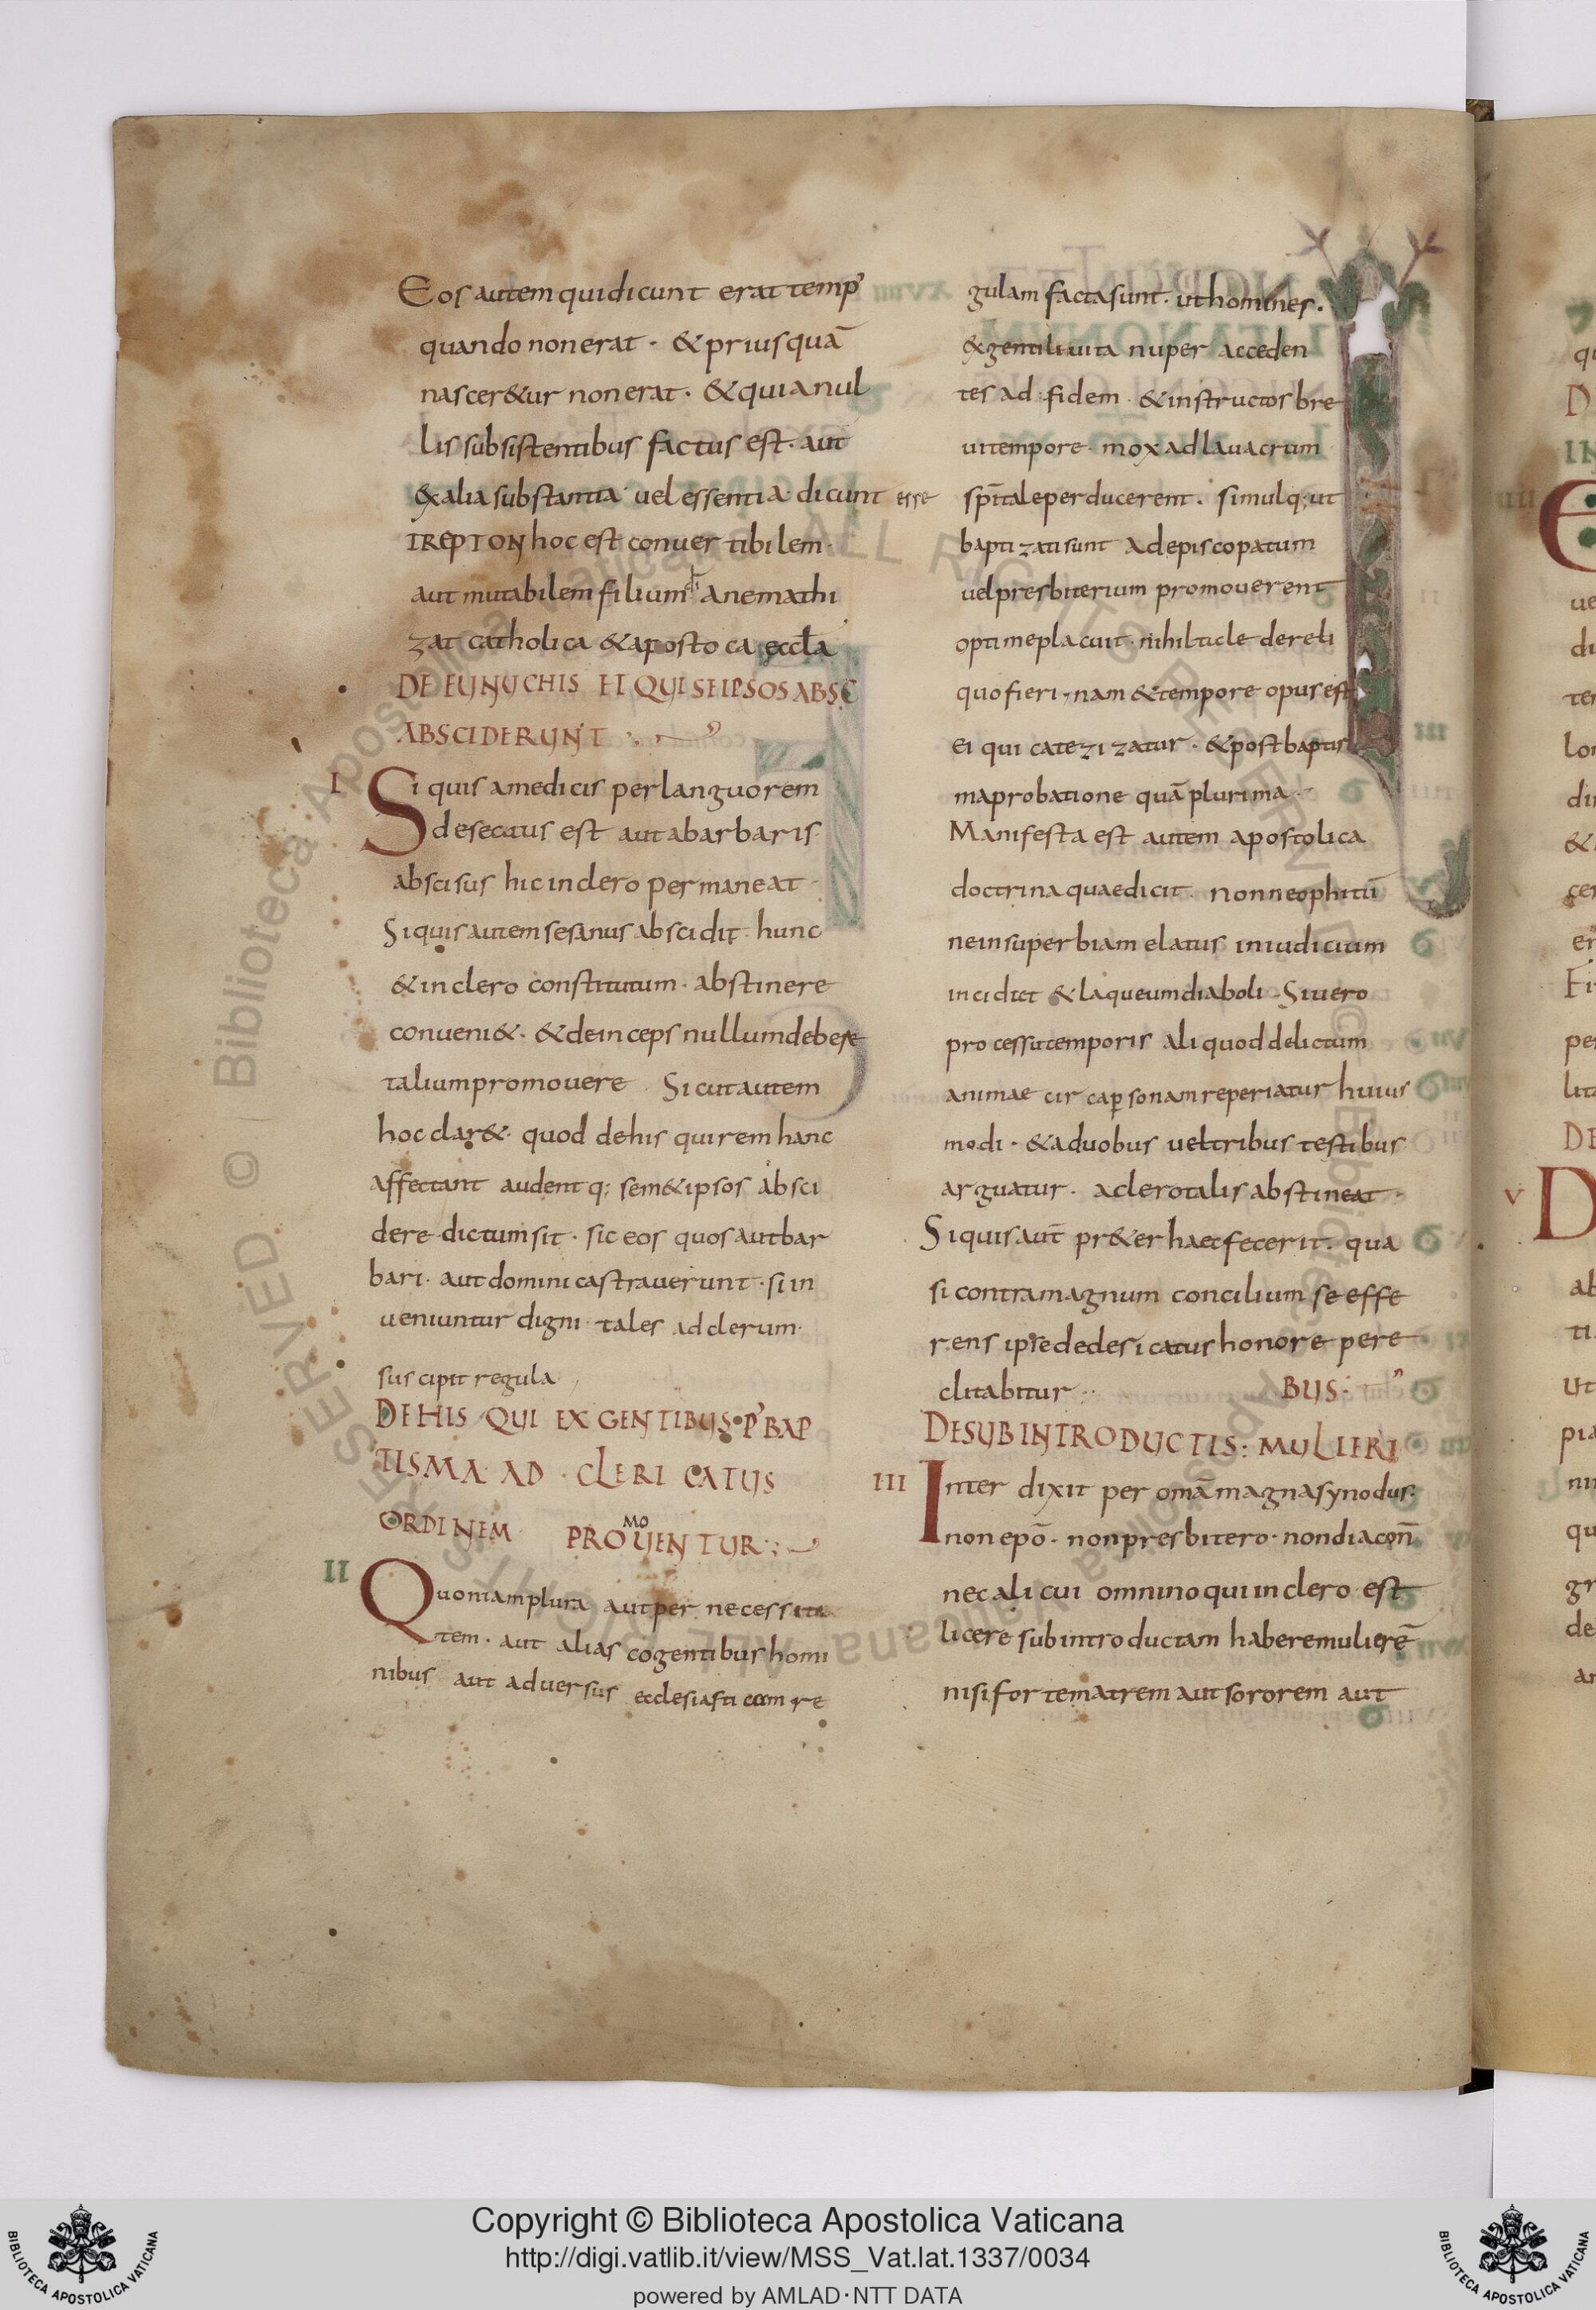 Eos autem quidicunt erat temp'
quando nonerat · & priusquā
nascer&ur nonerat · & quianul
lis subsistentibus factus est · aut
exalia substantia uel essentia dicunt esse
TREPTON hoc est conuertibilem ·
aut mutabilem filium anemathi
zat catholica & aposto ca eccła
DE EUNUCHIS ET QUI SEIPSOS ABSC
ABSCIDERUNT
I Si quis amedicis perlanguorem
desectus est aut abarbaris
abscisus hic inclero permaneat
Siquis autem sesanus abscidit · hunc
& inclero constitutum · abstinere
conueni& · & deinceps nullum debere
talium promouere Sicut autem
hoc clar& · quod dehis qui rem hanc
affectant audentq; sem&ipsos absci
dere dictum sit · sic eos quos aut bar
bari · aut domini castrauerunt · si in
ueniuntur digni · tales adclerum ·
suscipit regula
DEHIS QUI EX GENTIBUS P' BAP
TISMA AD CLERICATUS
ORDINEM PROMOUENTUR
II Quoniam plura aut per necessita
tem · aut alias cogentibus homi
nibus aut aduersus ecclesiasticam re
gulam facta sunt · ut homines ·
& gentili uita nuper acceden
tes ad fidem & instructos bre
ui tempore mox adlauacrum
sp̄itale perducerent · simulq; ut
baptizati sunt adepiscopatum
uel presbiterium promouerent
optime placuit · nihil tale dereli
quo fieri, nam & tempore opus est
ei qui catezizatur · & post baptis
ma probatione quā plurima
Manifesta est autem apostolica
doctrina quae dicit non neophitū
ne insuperbiam elatus iniudicium
incidat & laqueum diaboli · Si uero
processu temporis aliquod delictum
animae circap̱sonam reperiatur huius
modi · & aduobus uel tribus testibus
arguatur · aclero talis abstineat ·
Siquis aut̄ pr&er haec fecerit · qua
si contra magnum concilium se effe
rens ipse dedesicatur honore pere
clitabitur BUS ·
DE SUBINTRODUCTIS : MULIERI
III Inter dixit per omā magna synodus ·
non epō · non presbitero · non diacon̄
nec alicui omnino qui inclero est
licere subintroductam habere mulierē
nisi forte matrem aut sororem aut
Copyright © Biblioteca Apostolica Vaticana
http://digi.vatlib.it/view/MSS_Vat.lat.1337/0034
powered by AMLAD·NTT DATA
BIBLIOTECA APOSTOLICA VATICANA
BIBLIOTECA APOSTOLICA VATICANA